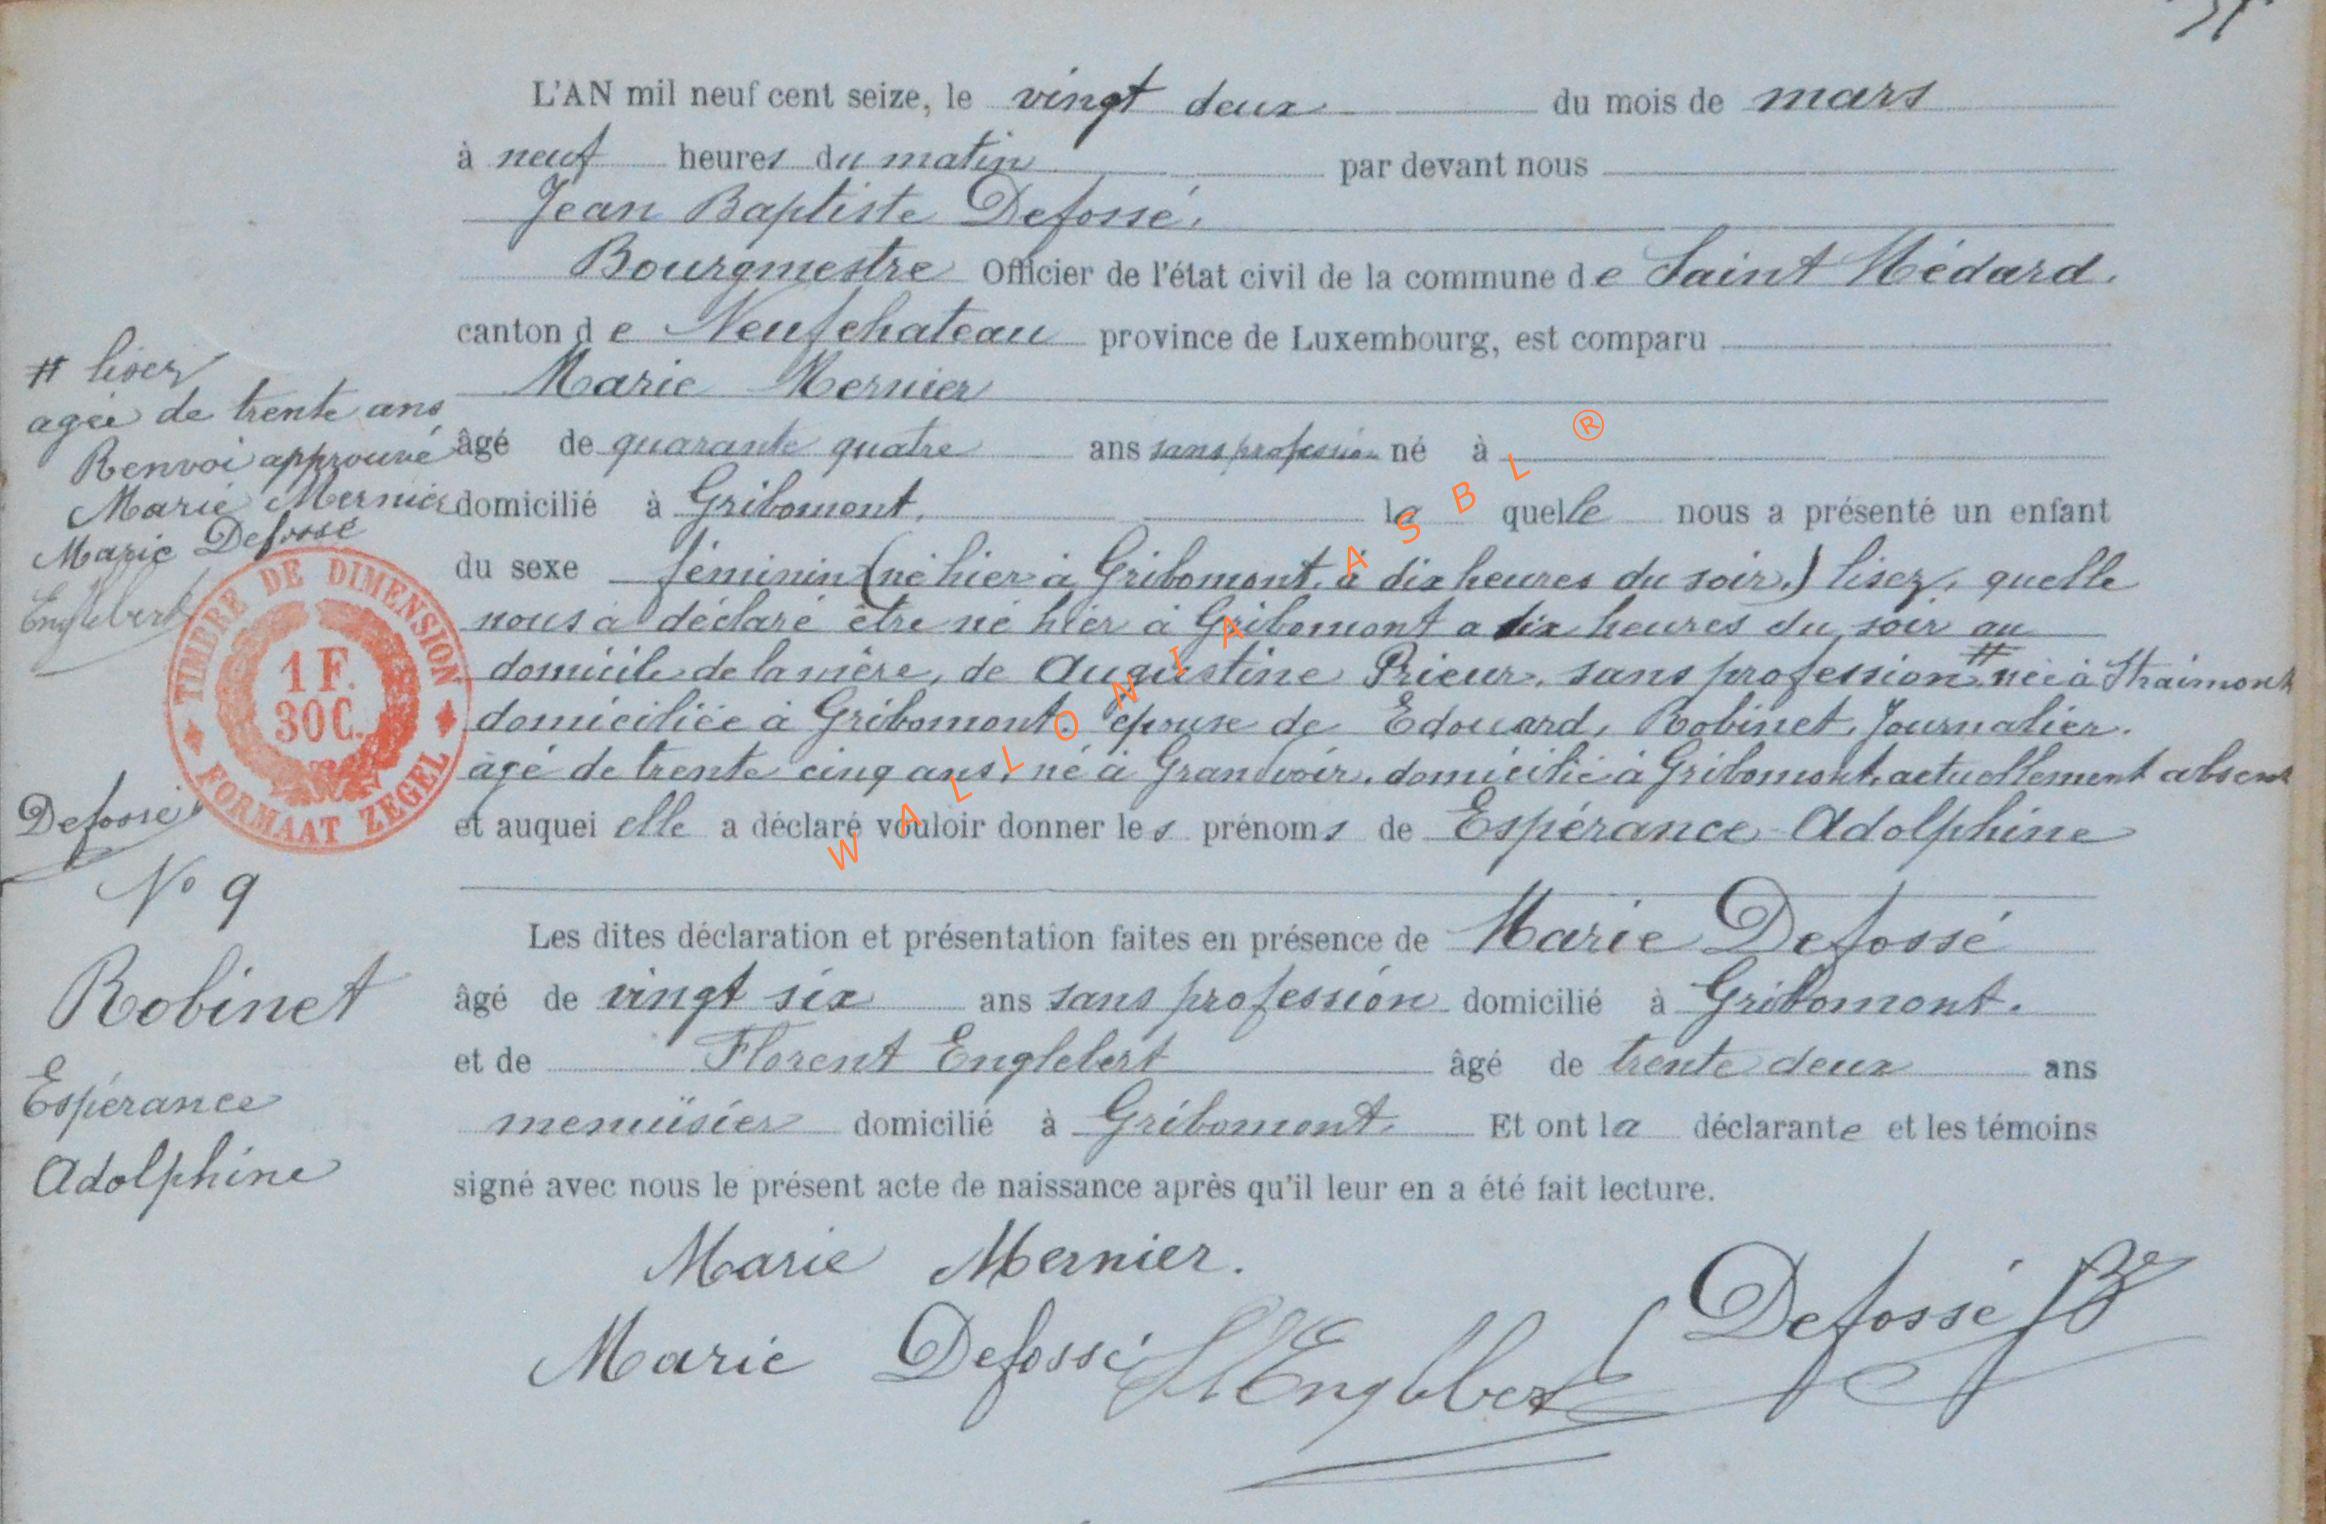 L'AN mil neuf cent seize, le vingt deux du mois de mars
à neuf heures du matin par devant nous
Jean Baptiste Defossé,
Bourgmestre Officier de l'état civil de la commune de Saint Médard.
canton de Neufchateau province de Luxembourg, est comparu
Marie Mernier
âgé de quarante quatre ans sans profession né à
domicilié à Gribomont, la quelle nous a présenté un enfant
du sexe féminin (né hier à Gribomont, à dix heures du soir.) lisez, quelle
nous à déclaré être né hier à Gribomont a dix heures du soir au
domicile de la mère, de Augustine Prieur, sans profession # née à Straimont
domiciliée à Gribomont. épouse de Edouard, Robinet, Journalier.
âgé de trente cinq ans, né à Grandvoir, domicilié à Gribomont, actuellement absent
et auquel elle a déclaré vouloir donner les prénoms de Espérance Adolphine
Les dites déclaration et présentation faites en présence de Marie Defossé
âgé de vingt six ans sans profession domicilié à Gribomont.
et de Florent Englebert âgé de trente deux ans
menuisier domicilié à Gribomont. Et ont la déclarante et les témoins
signé avec nous le présent acte de naissance après qu'il leur en a été fait lecture.
Marie Mernier.
Marie Defossé
Englebert
Defossé
# lisez
agée de trente ans
Renvoi approuvé
Marie Mernier
Marie Defossé
Englebert
TIMBRE DE DIMENSION
1 F.
30 C.
FORMAAT ZEGEL
Defossé
No 9
Robinet
Espérance
Adolphine
WALLONIA ASBL ®